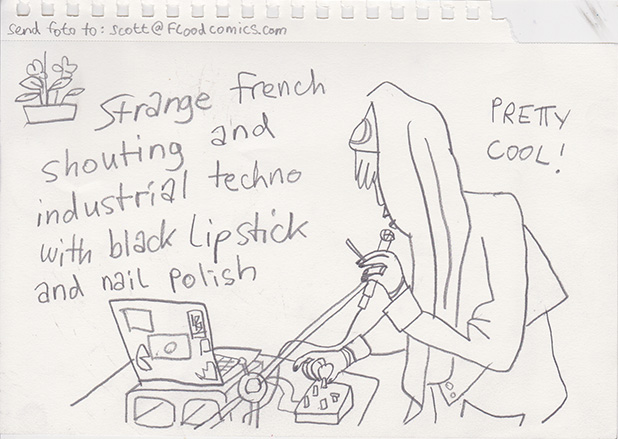 send foto to: scott@Floodcomics.com
Strange French
shouting and
industrial techno
with black Lipstick
and nail polish
PRETTY
COOL!